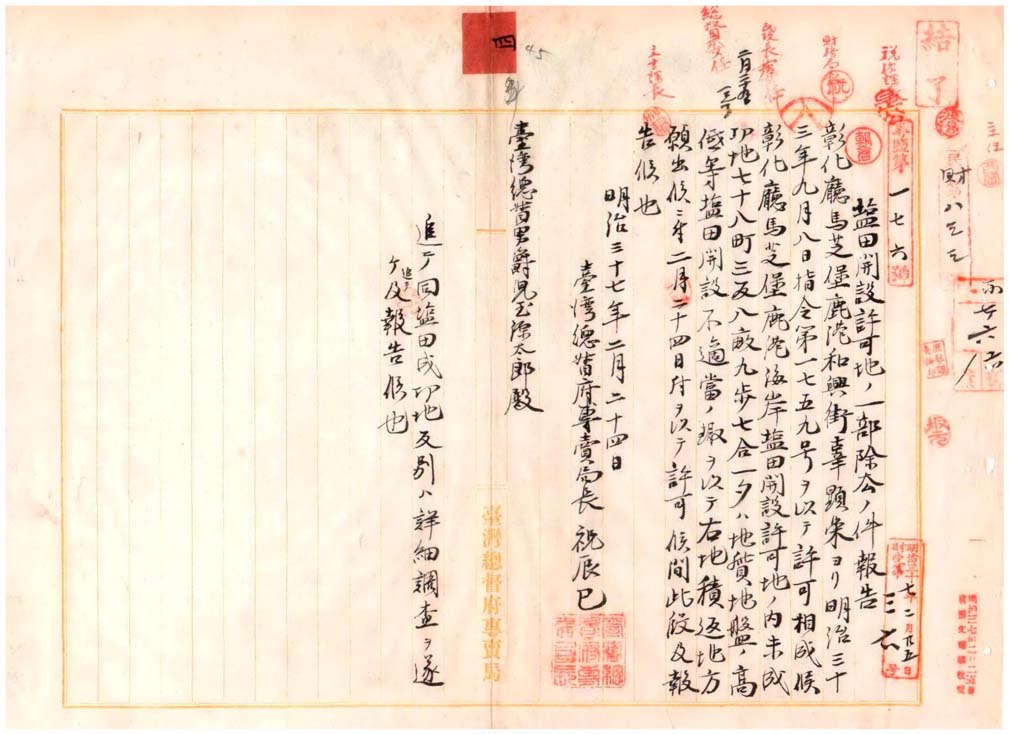 結了
主任
財
八三三
税務課長
財務局長
民政長官
総督委任
文書課長
二月二十五
専塩第一七六號
明治三十七年二月廿五日
四
45
塩田開設許可地ノ一部除去ノ件報告
彰化廳馬芝堡鹿港和興街辜顯榮ヨリ明治三十
三年九月八日指令第一七五九号ヲ以テ許可相成候
彰化廳馬芝堡鹿港海岸塩田開設許可地ノ内未成
功地七十八町三反八畝九歩七合一夕ハ地質地盤ノ高
低等塩田開設不適當ノ趣ヲ以テ右地積返地方
願出候ニ付二月二十四日付ヲ以テ許可候間此段及報
告候也
明治三十七年二月二十四日
臺灣總督府專賣局長 祝辰巳
臺灣總督男爵児玉源太郎殿
追テ同塩田成功地反別ハ詳細調査ヲ遂
ケ追テ及報告候也
臺灣總督府專賣局